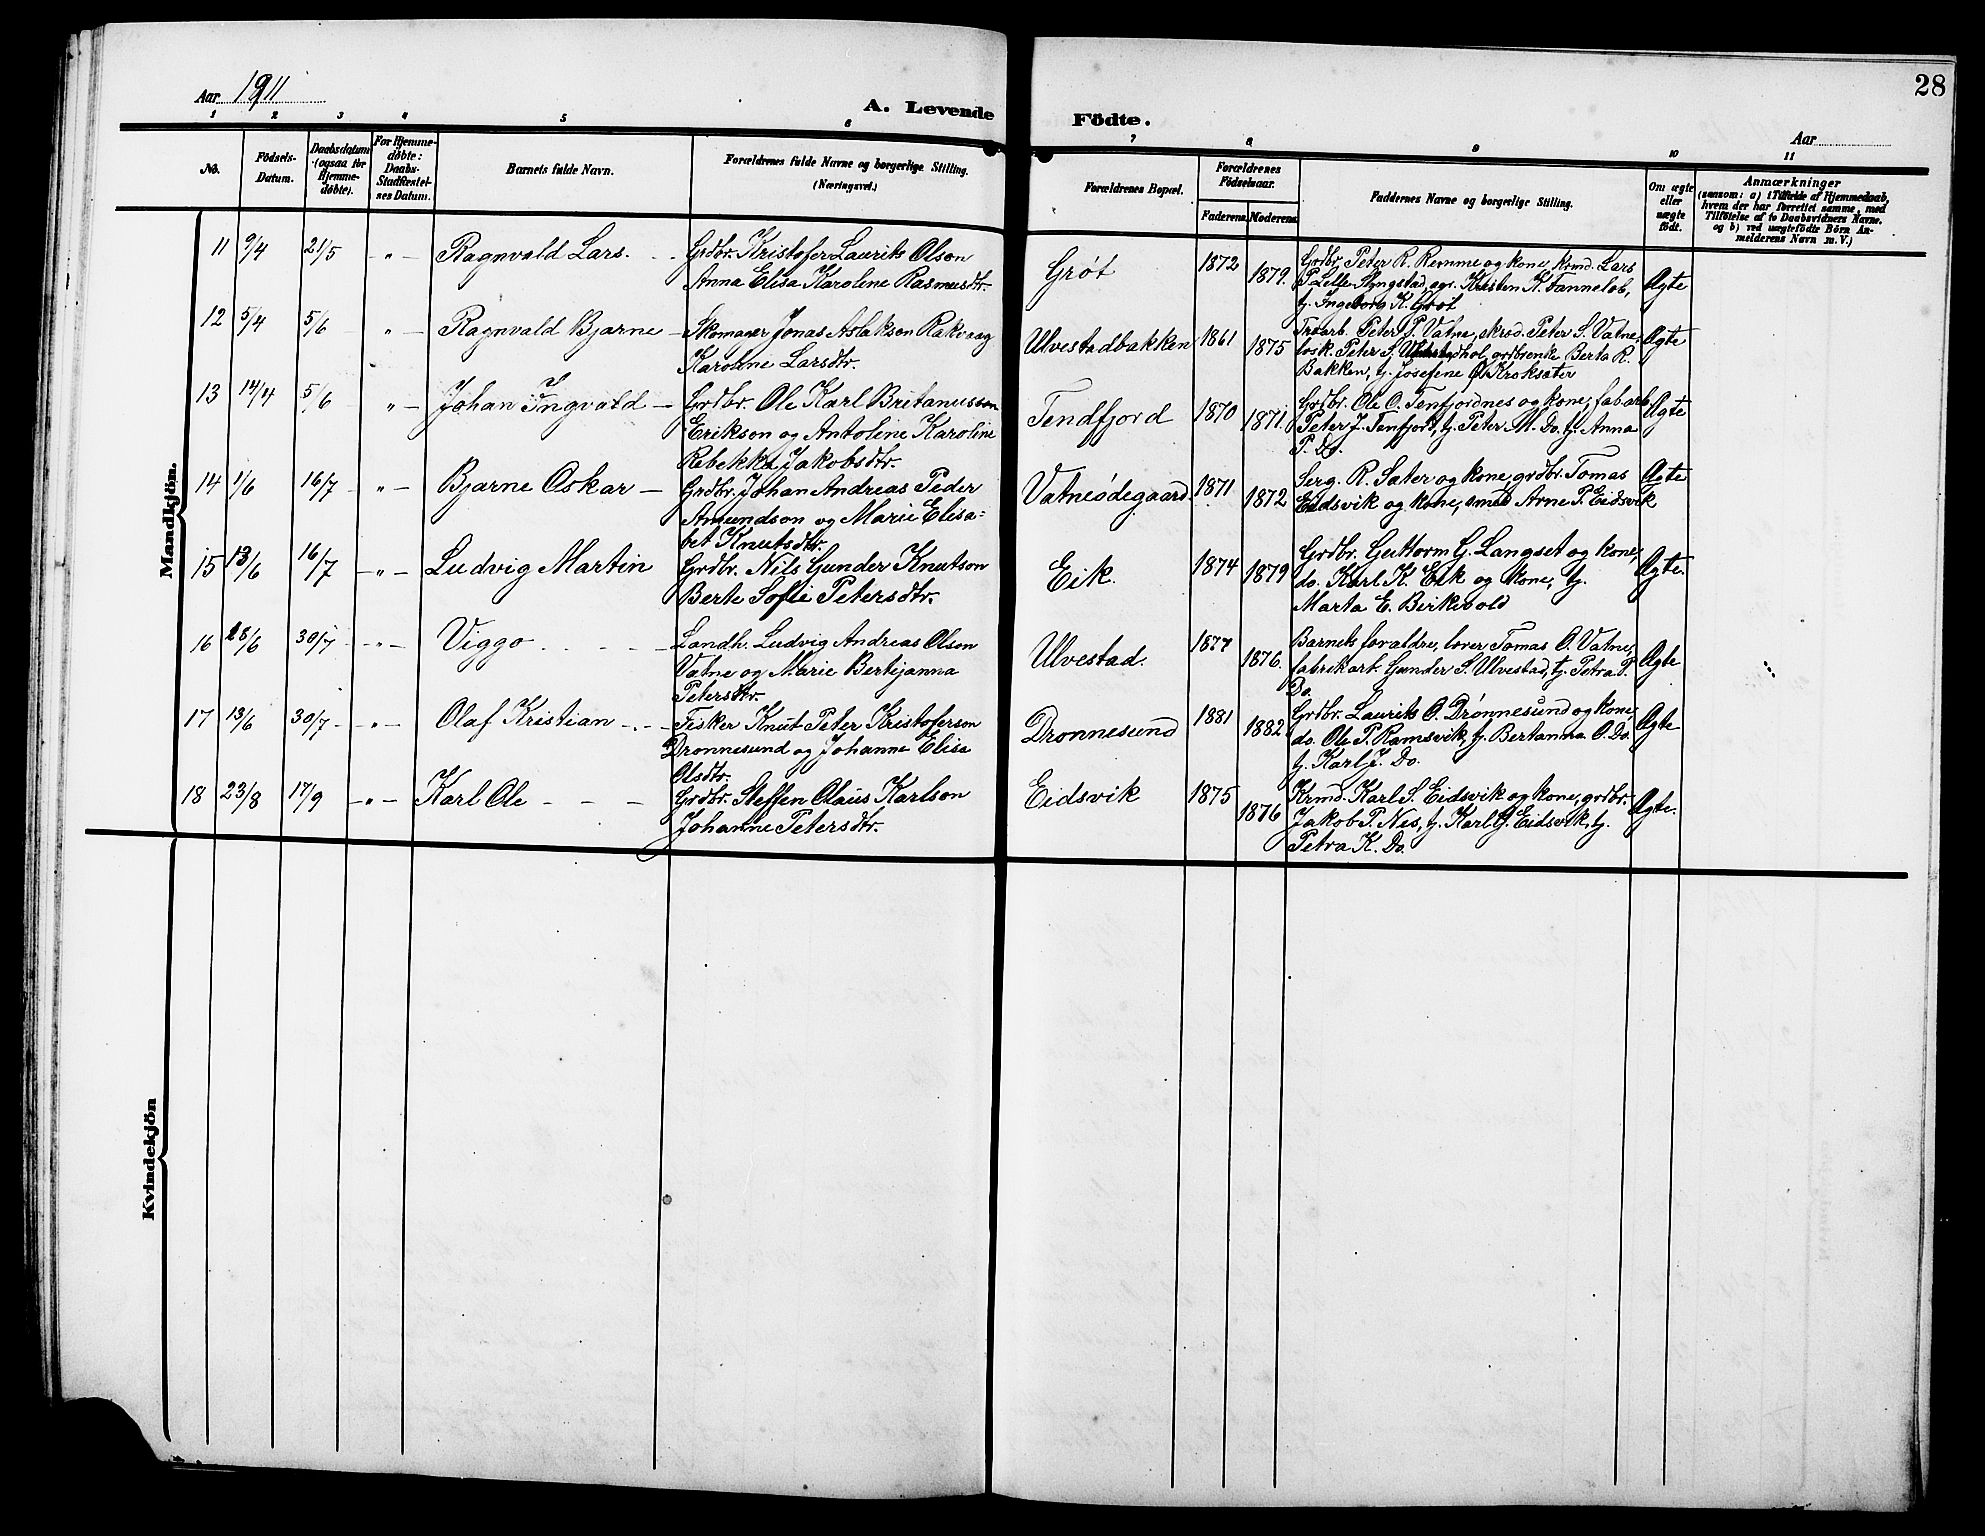 28
Aar 1911
A. Levende Födte.
Aar
1 2 3 4 5 6 7 8 9 10 11
No.
Födsels-
Datum.
Daabsdatum
(ogsaa for
Hjemme-
døbte).
For Hjemme-
døbte:
Daabs-
Stadfæstel-
ses Datum.
Barnets fulde Navn.
Forældrenes fulde Navne og borgerlige Stilling.
(Næringsvei.)
Forældrenes Bopæl.
Forældrenes
Födselsaar.
Faderens. Moderens.
Faddernes Navne og borgerlige Stilling.
Om ægte
eller
uægte
født.
Anmærkninger
(saasom: a) i Tilfælde af Hjemmedaab,
hvem der har forrettet samme, med
Tilföielse af to Daabsvidners Navne.
og b) ved uægtefödte Börn An-
melderens Navn m. V.)
Mandkjön.
11 9/4 21/5 -"- Ragnvald Lars. Grdbr. Kristofer Laurits Olson
Anna Elisa Karoline Rasmusdtr.
Grøt 1872 1879.
Grdbr. Peter R. Remme og kone, krmd. Lars
P. Slyngstad, ags. Kristen K. Tannelob,
tj. Ingeborg K. Grøt
Ægte
12 5/4 5/6 -"- Ragnvald Bjarne – Skomager Jonas Aslakson Rakvaag
Karoline Larsdtr.
Ulvestadbakken 1861 1875
Træarb. Peter P. Vatne, skræd. Peter S. Vatne,
losk. Peter S. grdbrenke Berta R.
Bakken, tj. Josefine O Kroksæter
Ægte
13 14/4 5/6 "- Johan Ingvald – Grdbr. Ole Karl Britanusson
Erikson og Antoline Karoline
Rebekka Jakobsdtr.
Tendfjord 1870 1871.
Grdbr. Ole O. Tenfjordnes og kone, fabarb.
Peter J. Tenfjord, tj. Peter M. Do. tj. Anna
P. Do.
Ægte
14 1/6 16/7 -"- Bjarne Oskar – Grdbr. Johan Andreas Peder
Amundson og Marie Elisa-
bet Knutsdtr.
Vatneødegaard. 1871 1872
Serg. R. Sæter og kone, grdbr. Tomas
Eidsvik og kone, smed Arne P. Eidsvik
Ægte
15 13/6 16/7 -"- Ludvig Martin Grdbr. Nils Gunder Knutson
Berte Sofie Petersdtr.
Eik. 1874 1879
Grdbr. Guttorm G. Langset og kone,
do. Karl K. Eik og kone, tj.
Marta E. Birkevold
Ægte.
16 28/6 30/7 -"- Viggo Landh. Ludvig Andreas Olson
Vatne og Marie Bertejanna
Petersdtr.
Ulvestad. 1877 1876.
Barnets forældre, lærer Tomas O. Vatne,
fabrikarb. Gunder S. Ulvestad, tj. Petra P.
Do.
Ægte
17 13/6 30/7 -"- Olaf Kristian Fisker Knut Peter Kristoferson
Drønnesund og Johanne Elise
Olsdtr.
Drønnesund 1881 1882
Grdbr. Laurits O. Drønnesund og kone,
do. Ole P. Ramsvik, tj. Bertanna O. Do.
tj. Karl J. Do.
Ægte
18 23/8 17/9 -"- Karl Ole Grdbr. Steffen Olaus Karlson
Johanne Petersdtr.
Eidsvik 1875 1876
Krmd. Karl S. Eidsvik og kone, grdbr.
Jakob P. Nes, tj. Karl G. Eidsvik, tj.
Petra K. Do.
Ægte.
Kvindekjön